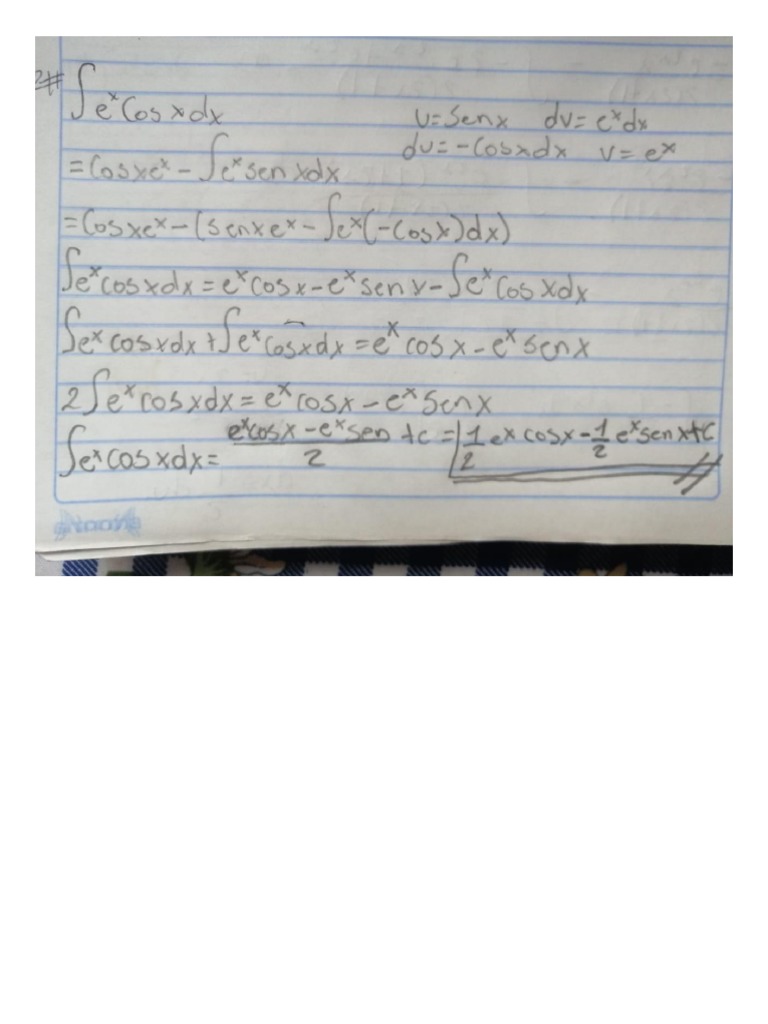 2# ∫e^x cos x dx
u = sen x   dv = e^x dx
du = -cos x dx   v = e^x
= cos x e^x - ∫e^x sen x dx
= cos x e^x - (sen x e^x - ∫e^x (-cos x) dx)
∫e^x cos x dx = e^x cos x - e^x sen x - ∫e^x cos x dx
∫e^x cos x dx + ∫e^x cos x dx = e^x cos x - e^x sen x
2∫e^x cos x dx = e^x cos x - e^x sen x
∫e^x cos x dx = (e^x cos x - e^x sen)/2 + c = 1/2 e^x cos x - 1/2 e^x sen x + c